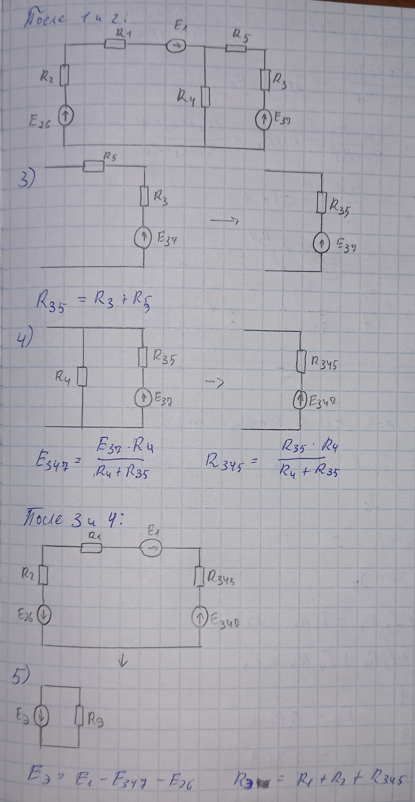 После 1 и 2:
R1 E1 R5
R2 R4 R3
E26 E37
3) R5
R3 R35
E37 E37
R35 = R3 + R5
4)
R4 R35 R345
E37 E347
E347 = E37 · R4 / R4 + R35 R345 = R35 · R4 / R4 + R35
После 3 и 4:
R1 E1
R2 R345
E26 E340
5)
Eэ Rэ
Eэ = E1 - E347 - E26 Rэ = R1 + R2 + R345